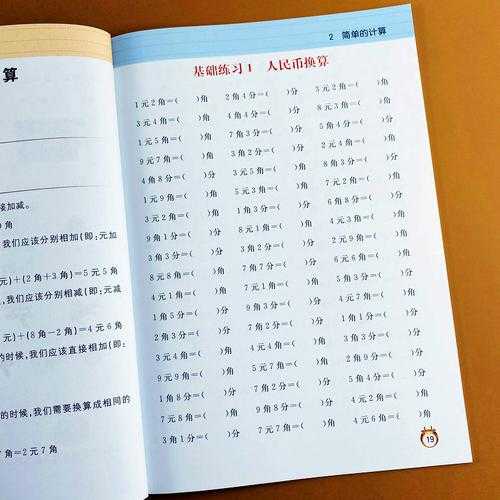 算
该加减。
角
我们应该分别相加(即:元加
元)+(2角+3角)=5元5角
,我们应该分别相减(即:元减
元)+(8角-2角)=4元6角
的时候,我们应该直接相加(即:
的时候,我们需要换算成相同的
角=2元7角
2 简单的计算
基础练习1 人民币换算
1元2角=( )角 2角4分=( )分 3元2角=( )角
3元4角=( )角 4角4分=( )分 8元3角=( )角
1元5角=( )角 7角3分=( )分 5角4分=( )分
9元7角=( )角 3角2分=( )分 2元4角=( )角
4角8分=( )分 3元5角=( )角 8角3分=( )分
1元9角=( )角 5元3角=( )角 7元2角=( )角
3元2角=( )角 1角3分=( )分 6角8分=( )分
9角1分=( )分 8元1角=( )角 4元3角=( )角
3角3分=( )分 3角2分=( )分 4元9角=( )角
8元8角=( )角 7角7分=( )分 6元2角=( )角
4元1角=( )角 7元1角=( )角 5角3分=( )分
1角5分=( )分 9角3分=( )分 4元7角=( )角
2角3分=( )分 7角2分=( )分 3角3分=( )分
3元4角=( )角 4元4角=( )角 5角4分=( )分
9元9角=( )角 5元7角=( )角 2角9分=( )分
1角8分=( )分 7角2分=( )分 4元7角=( )角
7元8角=( )角 9角8分=( )分 4元2角=( )角
3角1分=( )分 7元7角=( )角 4元6角=( )角
19